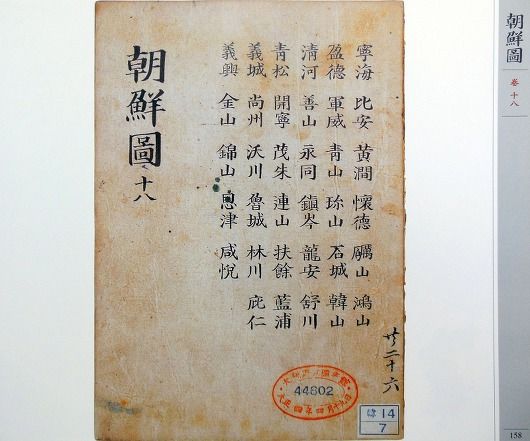 朝鮮圖
卷十八
寧海 比安 黃澗 懷德 礪山 鴻山
盈德 軍威 青山 珎山 石城 韓山
清河 善山 永同 鎭岑 龍安 舒川
青松 開寧 茂朱 連山 扶餘 藍浦
義城 尚州 沃川 魯城 林川 庇仁
義興 金山 錦山 恩津 咸悅
朝鮮圖 十八
二十六
44602
大正四年四月十九日
14
7
158